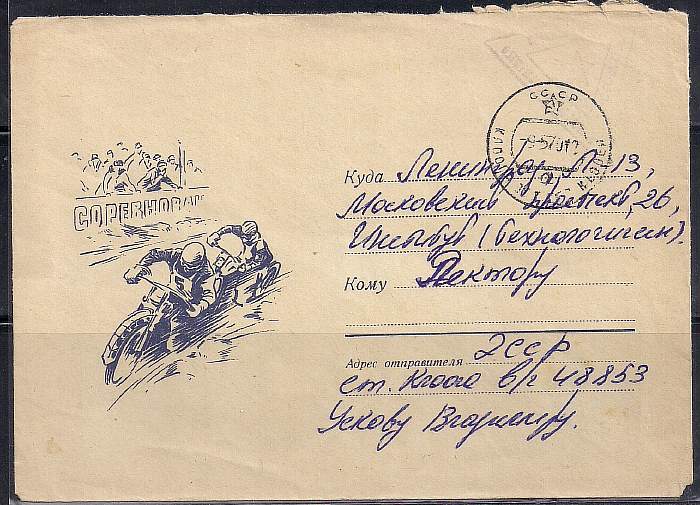 СССР
9-570 12
СОРЕВНОВАН
Куда Ленинград Л-13,
Московский проспект, 26,
Институт (Технологичен).
Кому Ректору
Адрес отправителя ЭССР
ст. Клоога в/ч 48853
Ускову Владимиру.